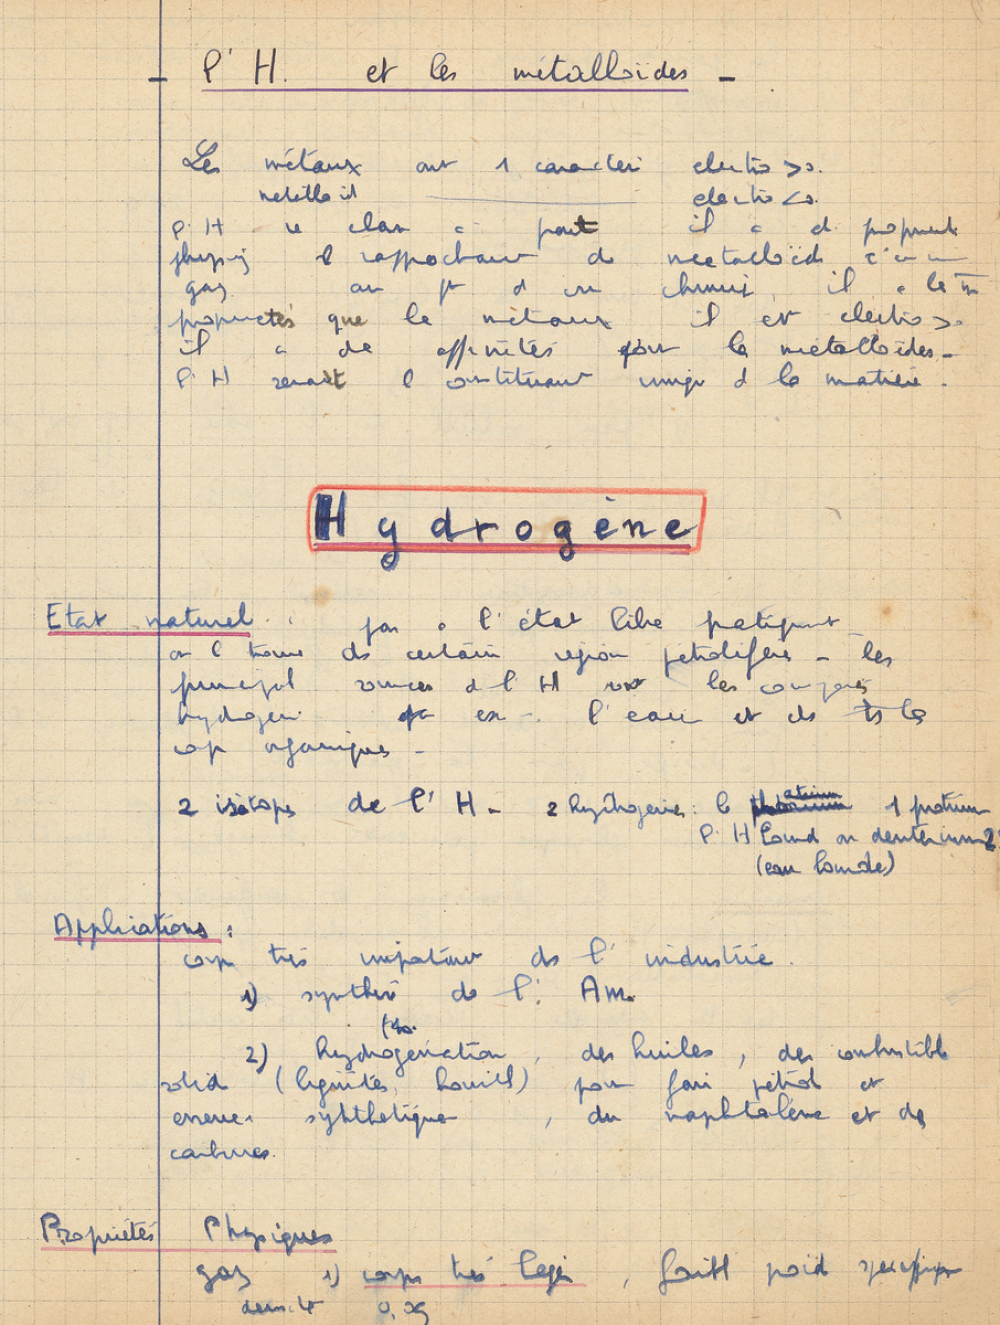 - l'H. et les métalloïdes -
Les métaux ont 1 caractère electro >o.
metalloid electro <o.
l'H se class à part il a d propriet
physiq l rapprochant de metalloïd c'
gaz au pt d vu chimiq, il a le m
propriétés que le métaux il est electro >o
il a de affinités pour le métalloïdes -
l'H serait l constituant uniq d la matière.
Hydrogène
Etat naturel : pas à l'état libre pratiqmt
on l trouve ds certain région pétrolifère - les
principal sources d l'H sont les composés
hydrogén par ex - l'eau et ds ts les
corp organiques -
2 isotops de l'H - 2 hydrogènes : le 1 protium
l'H lourd ou deuterium 2
(eau lourde)
Applications :
corp très important ds l'industrie.
1) synthès de l' Am.
2) hydrogénation, des huiles, des combustibl
solid (lignites, houill) pour fair pétrol et
essence synthétique, du naphtalène et de
carbures.
Propriétés Physiques
gaz 1) corps très léger, faibl poid specifiqe
densité 0,09